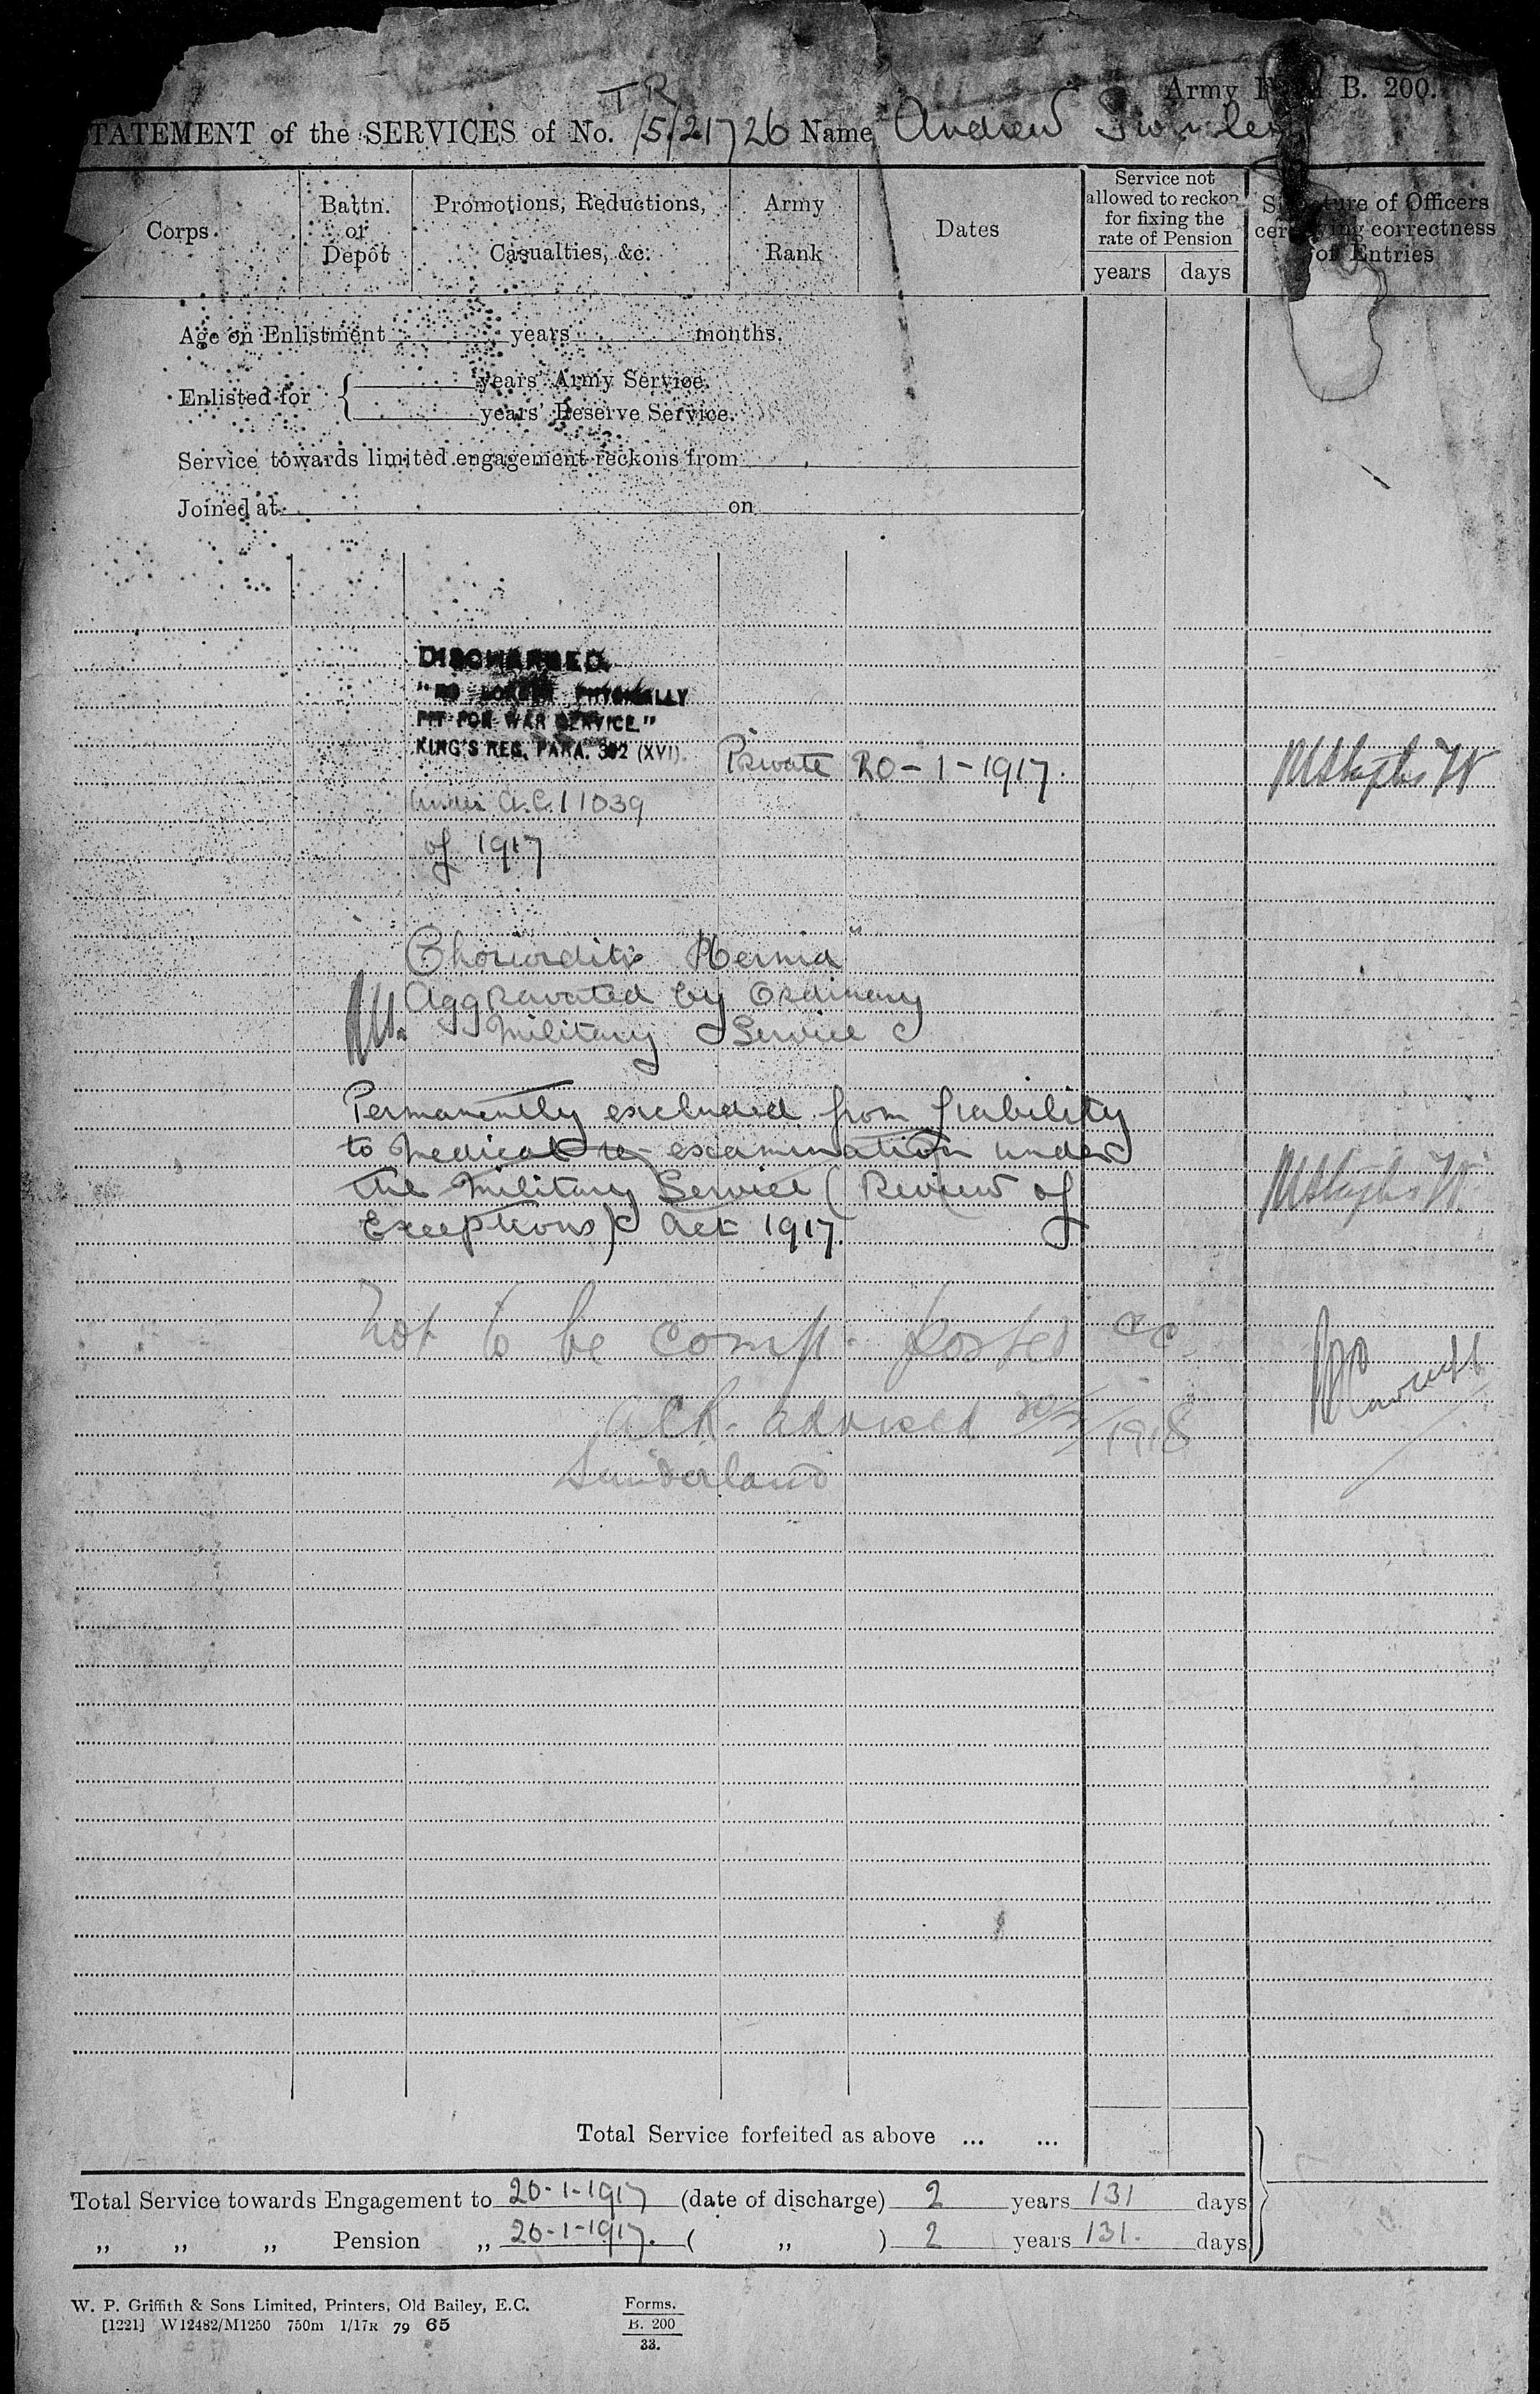 Army B. 200.
TATEMENT of the SERVICES of No. TR/5/21726 Name Andrew
Corps.
Battn. or Depôt
Promotions, Reductions, Casualties, &c.
Army Rank
Dates
Service not allowed to reckon for fixing the rate of Pension
years days
Signature of Officers certifying correctness of Entries
Age on Enlistment years months.
Enlisted for { years' Army Service.
years' Reserve Service.
Service towards limited engagement reckons from
Joined at on
DISCHARGED
"NO LONGER PHYSICALLY
FIT FOR WAR SERVICE"
KING'S REG. PARA. 392 (XVI).
Private 20-1-1917.
under A.C.I 1039
of 1917
Hernia
Aggravated by Ordinary
Military Service
Permanently excluded from liability
to medical re-examination under
the Military Service (Review of
Exceptions) Act 1917.
Not to be comp. posted
advised 1918
Sunderland
Total Service forfeited as above ... ...
Total Service towards Engagement to 20-1-1917 (date of discharge) 2 years 131 days
„ „ „ Pension „ 20-1-1917. ( „ ) 2 years 131. days
W. P. Griffith & Sons Limited, Printers, Old Bailey, E.C.
[1221] W12482/M1250 750m 1/17R 79 65
Forms.
B. 200
33.